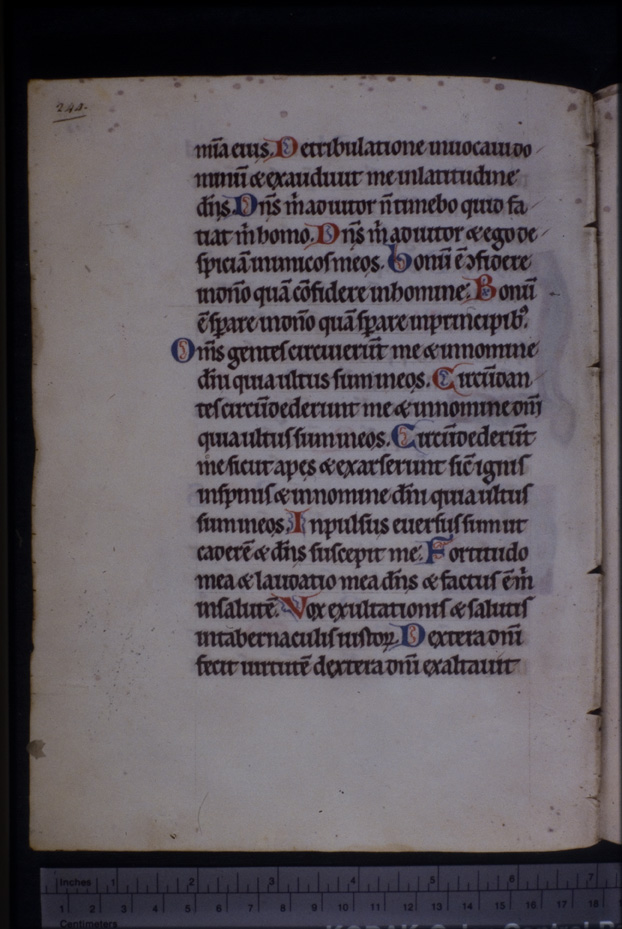 244.
mīa eius. De tribulatione inuocaui do
minū & exaudiuit me inlatitudine
dn̄s. Dn̄s m̄ adiutor n̄ timebo quid fa
tiat m̄ homo. Dn̄s m̄ adiutor & ego de
spiciā inimicos meos. Bonū ē ↄfidere
indn̄o quā cōfidere inhomine. Bonū
ē sꝑare indn̄o quā sꝑare inprincipib;
Om̄s gentes circuierūt me & innomine
dn̄i quia ultus sum ineos. Circūdan
tes circūdederunt me & innomine dn̄i
quia ultus sum ineos. Circūdederūt
me sicut apes & exarserunt sic̄ ignis
inspinis & innomine dn̄i quia ultus
sum ineos. Inpulsus euersus sum ut
caderē & dn̄s suscepit me. Fortitudo
mea & laudatio mea dn̄s & factus ē m̄
insalutē. Vox exultationis & salutis
intabernaculis iustoꝝ. Dextera dn̄i
fecit uirtutē dextera dn̄i exaltauit
Inches 1 2 3 4 5 6 7
1 2 3 4 5 6 7 8 9 10 11 12 13 14 15 16 17 18
Centimeters